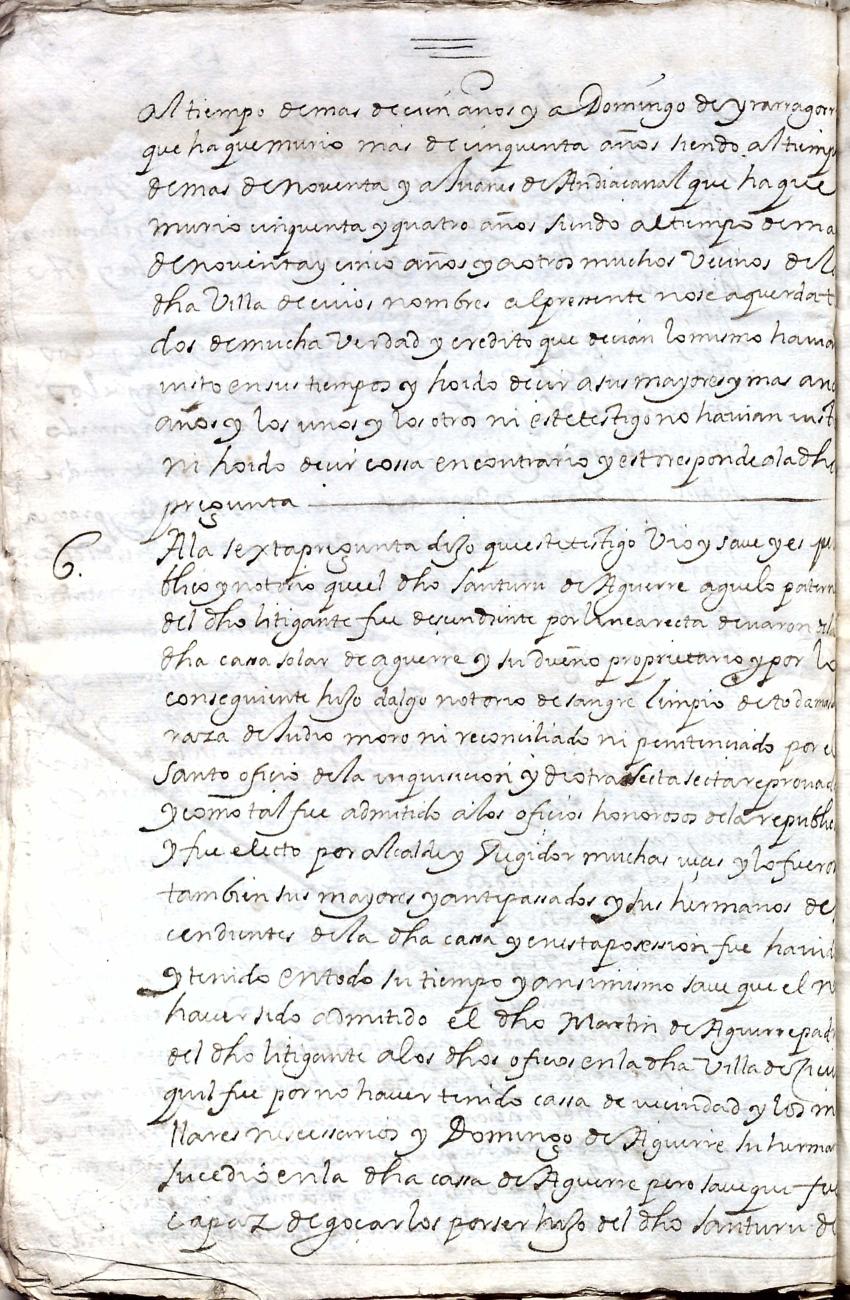 al tiempo de mas de cien años y a Domingo de yrarragorr
que ha que murio mas de cinquenta años siendo al tiemp
de mas de noventa y a Juanes de Andiacanal que ha que
murio cinquenta y quatro años siendo al tiempo de ma
de noventa y cinco años y a otros muchos Vecinos de l
dha Villa de cuios nombres al pressente no se aquerda t
dos de mucha Verdad y credito que decian lo mismo havia
visto en sus tiempos y hoido decir a sus mayores y mas anc
años y los unos y los otros ni este testigo no havian vist
ni hoido decir cossa en contrario y esto responde a la dha
pregunta
6. A la sexta pregunta dijo que este testigo Vio y save y es pu
blico y notorio que el dho Santuru de Aguerre aguelo patern
del dho litigante fue descendiente por linea recta de varon de la
dha cassa solar de aguerre y su dueño proprietario y por lo
conseguiente hijo dalgo notorio de sangre limpio de toda mala
raza de Judio moro ni reconciliado ni penitenciado por el
santo oficio de la inquisicion y de otra secta reprovad
y como tal fue admitido a los oficios honorosos de la republi
y fue electo por alcalde y Regidor muchas veces y lo fueron
tambien sus mayores y antepassados y sus hermanos de
cendientes de la dha cassa y en esta posession fue havid
y tenido en todo su tiempo y ansimismo save que el n
haver sido admitido el dho Martin de Aguirre pad
del dho litigante a los dhos oficios en la dha Villa de
quil fue por no haver tenido cassa de vecindad y los m
llares nescessarios y Domingo de Aguerre su herma
sucedio en la dha cassa de Aguerre pero save que fu
capaz de goçarlos por ser hijo del dho Santuru de